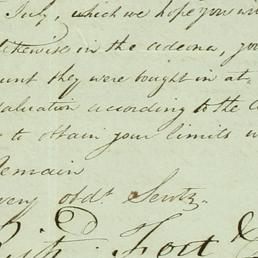 July, which we hope you wi
likewise in the adema, yo
unt they were bought in at
valuation according to the C
to obtain your limits w
Remain
very obdt. Servts.
Fort &